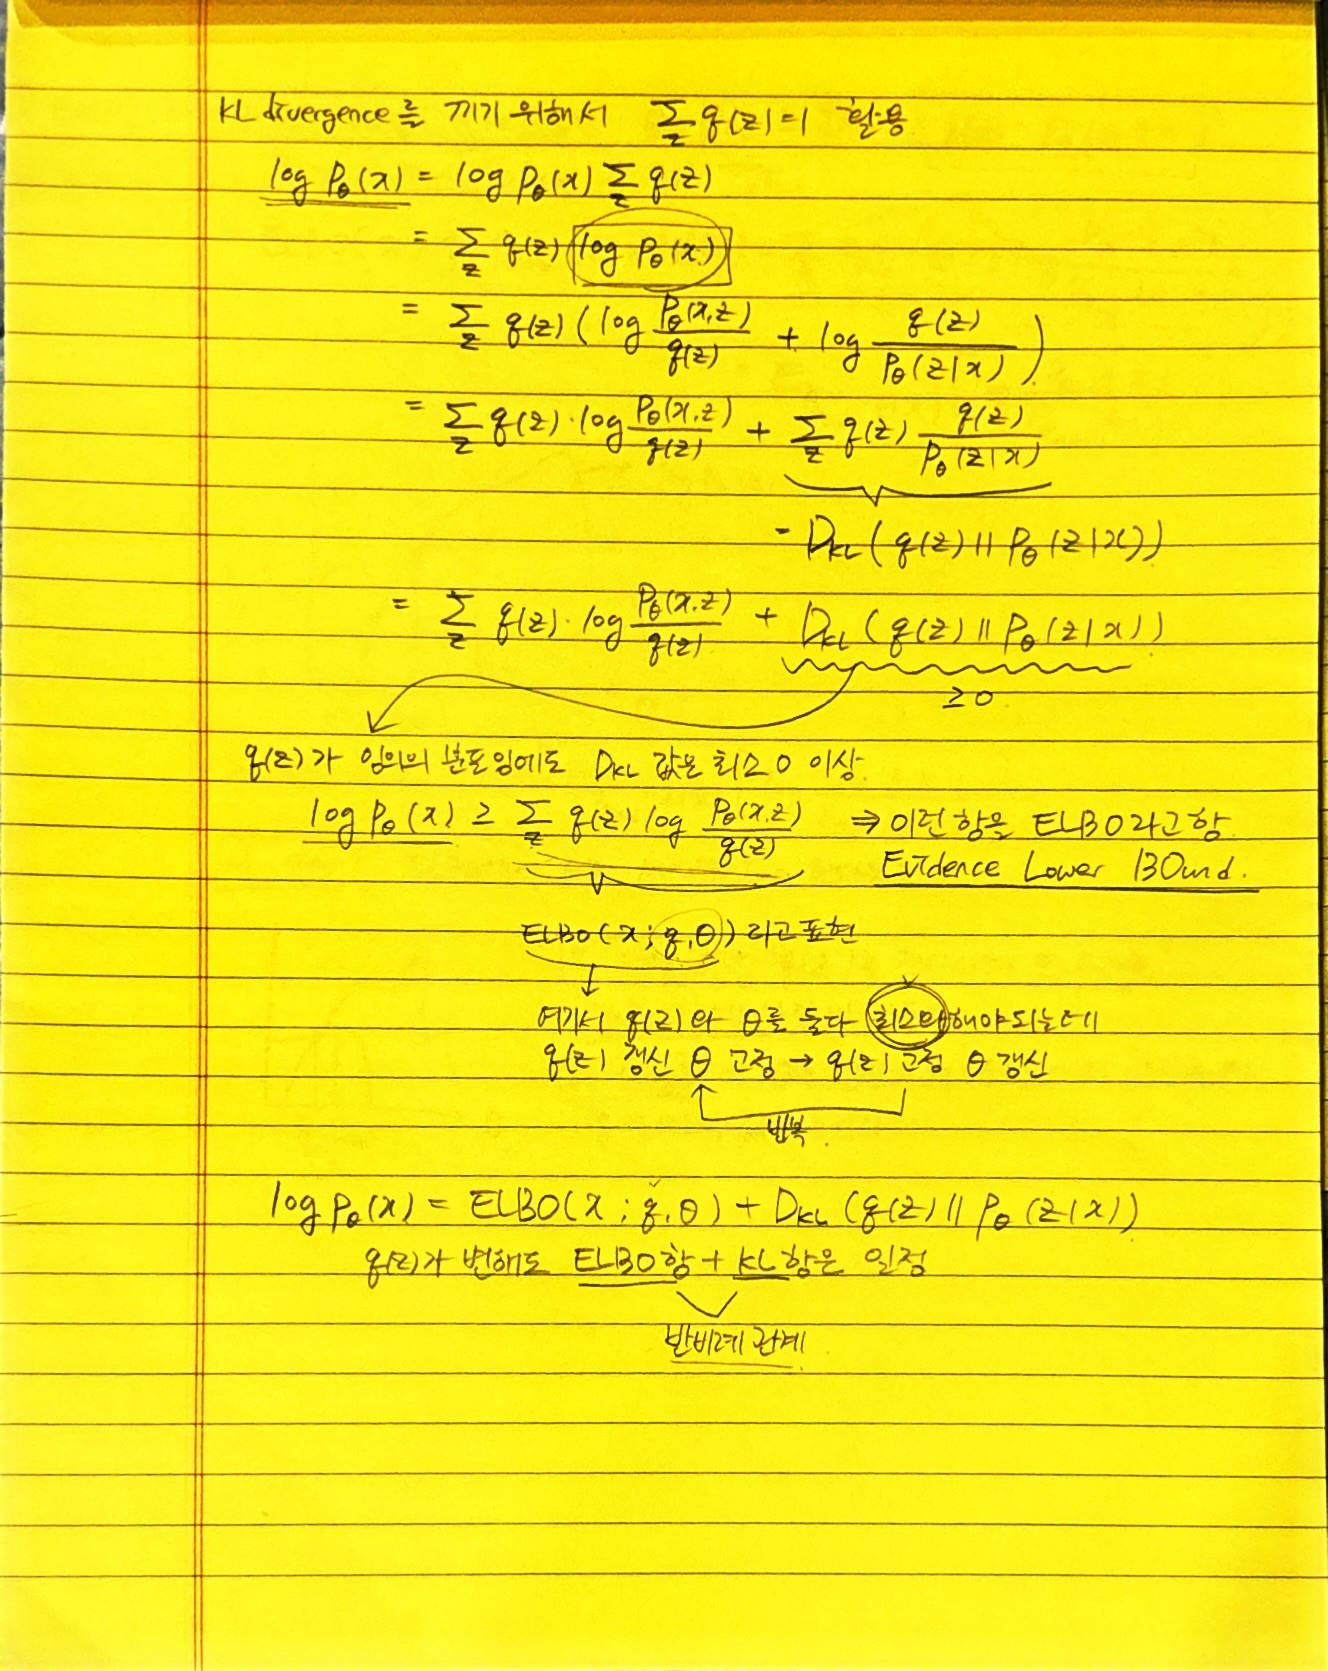 KL divergence를 끼기 위해서 ∑_z q(z)=1 활용
log Pθ(x) = log Pθ(x) ∑_z q(z)
= ∑_z q(z) log Pθ(x)
= ∑_z q(z) ( log Pθ(x,z)/q(z) + log q(z)/Pθ(z|x) )
= ∑_z q(z) · log Pθ(x,z)/q(z) + ∑_z q(z) q(z)/Pθ(z|x)
- DKL ( q(z) || Pθ(z|x))
= ∑_z q(z) · log Pθ(x,z)/q(z) + DKL ( q(z) || Pθ(z|x))
≥0
q(z)가 임의의 분포임에도 DKL 값은 최소 0 이상.
log Pθ(x) ≥ ∑_z q(z) log Pθ(x,z)/q(z) ⇒ 이런 항을 ELBO라고 함.
Evidence Lower BOund.
ELBO(x; q,θ) 라고 표현
여기서 q(z)와 θ를 둘다 최소화해야되는데
q(z) 갱신 θ 고정 → q(z) 고정 θ 갱신
반복
log Pθ(x) = ELBO(x; q,θ) + DKL (q(z) || Pθ(z|x))
q(z)가 변해도 ELBO항 + KL항은 일정
반비례 관계